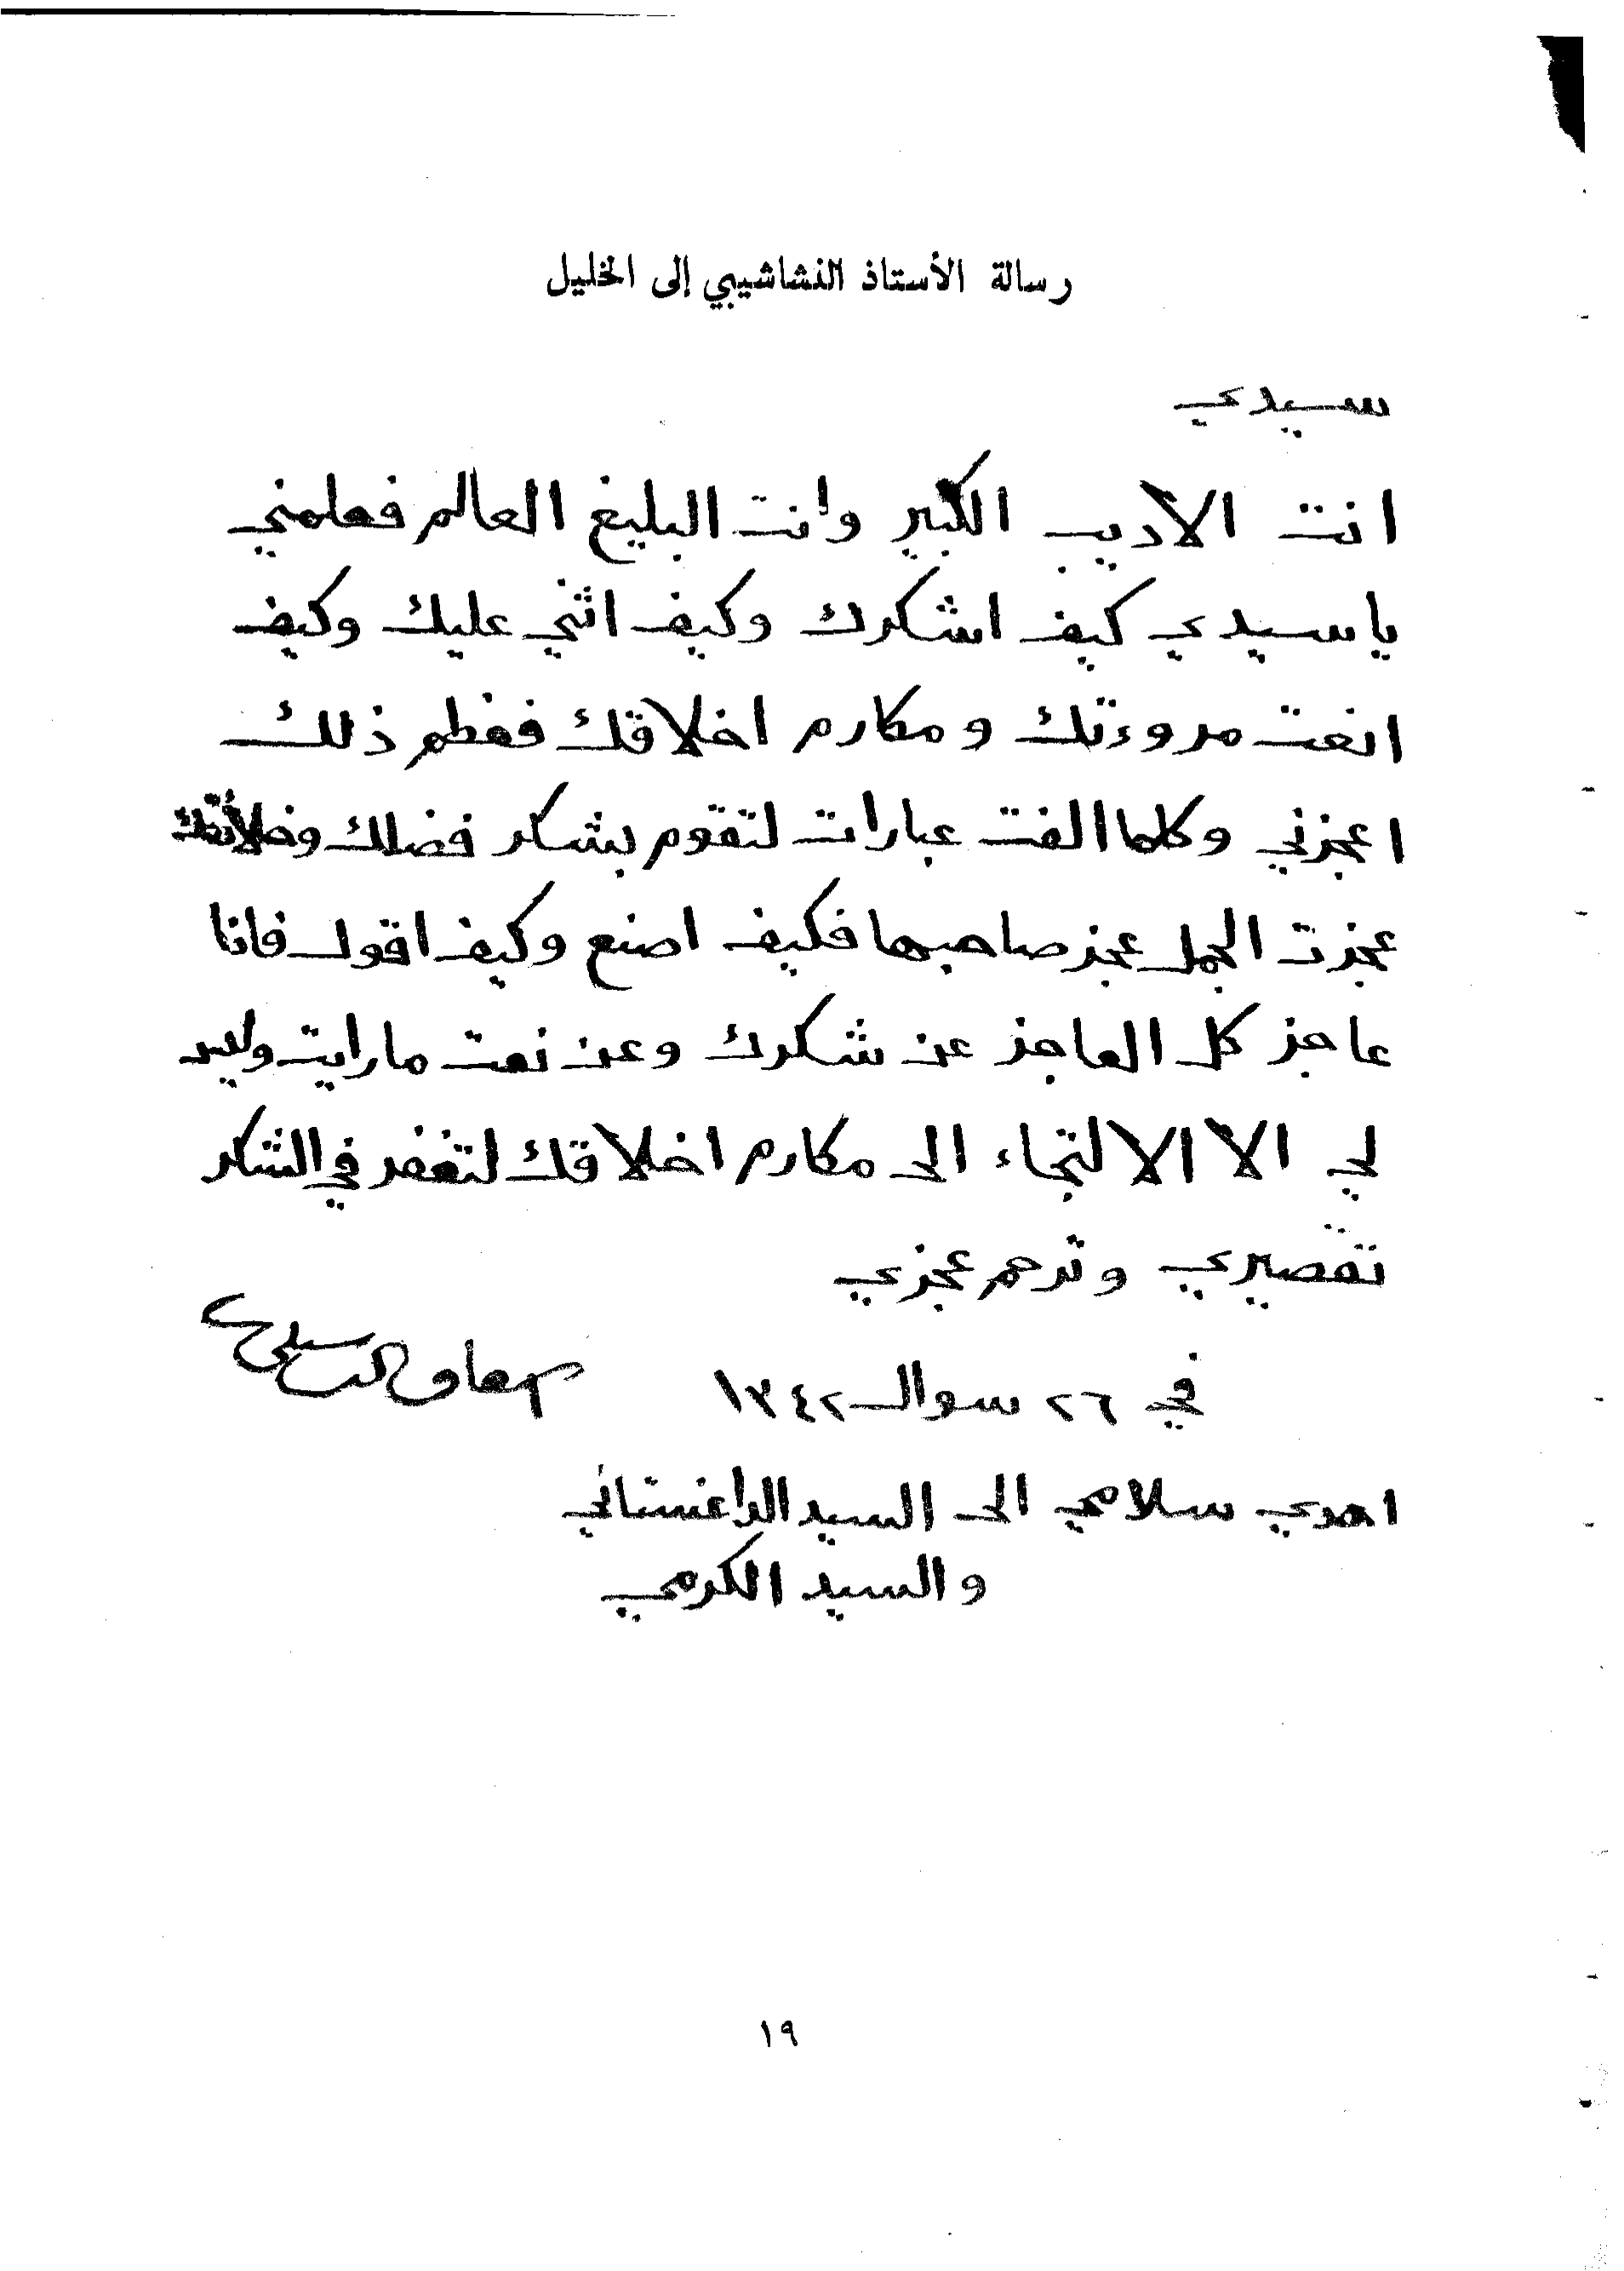 رسالة الأستاذ النشاشيبي إلى الخليل
سيدي
انت الاديب الكبير وانت البليغ العالم فعلمني
يا سيدي كيف اشكرك وكيف اثني عليك وكيف
انعت مروءتك ومكارم اخلاقك فعظم ذلك
اعجزني وكلما الفت عبارات لتقوم بشكر فضلك وخلائقك
عجزت الجمل عجز صاحبها فكيف اصنع وكيف اقول فانا
عاجز كل العاجز عن شكرك وعن نعت ما رايت وليس
لي الا الالتجاء الى مكارم اخلاقك لتغفر في الشكر
تقصيري وترحم عجزي
في ٢٦ شوال ١٣٤٢ اسعاف النشاشيبي
اهدي سلامي الى السيد الداغستاني
والسيد الكرمي
١٩